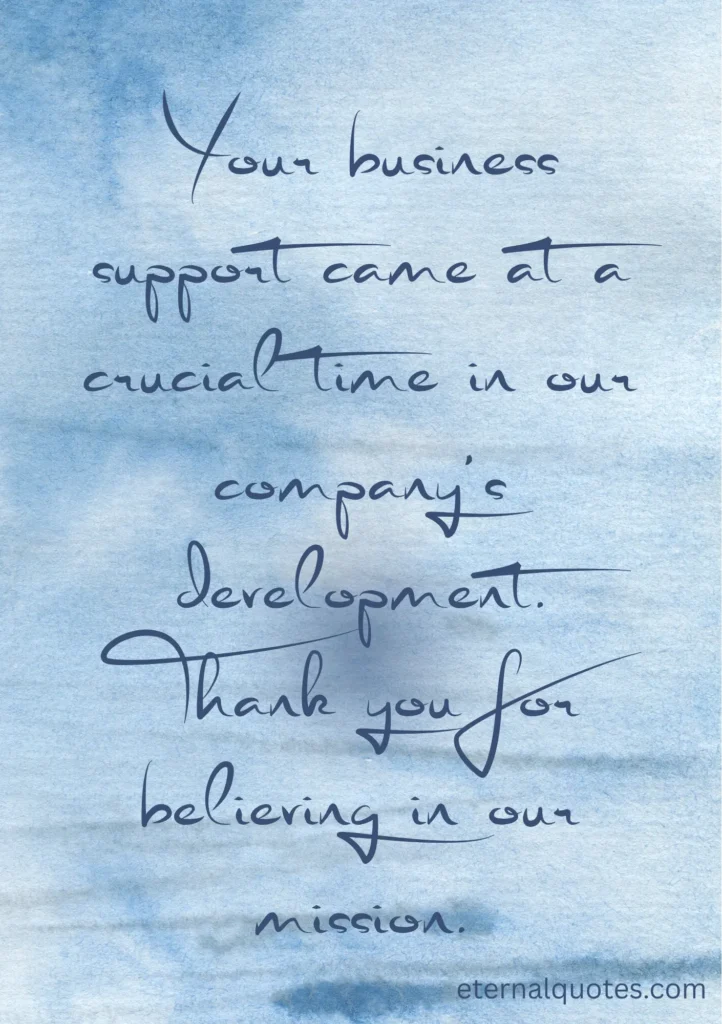 Your business
support came at a
crucial time in our
company's
development.
Thank you for
believing in our
mission.
eternalquotes.com